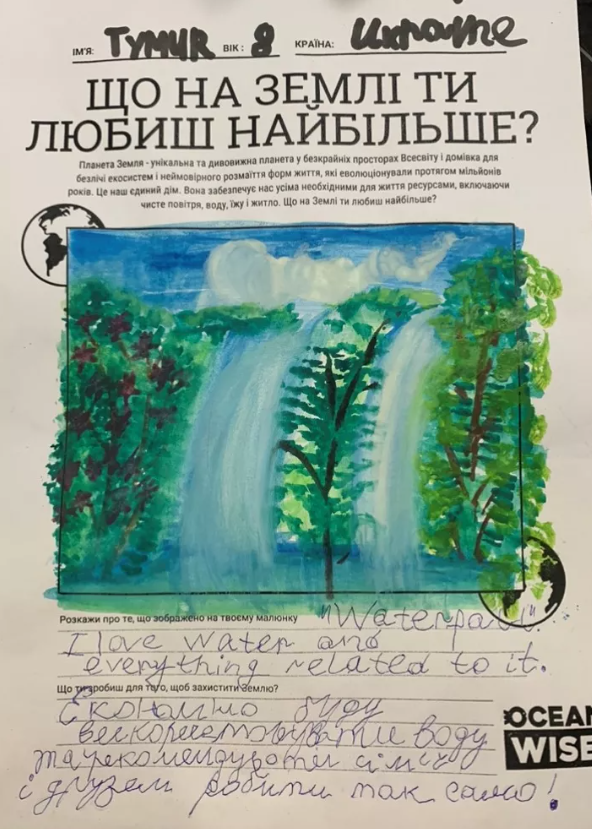 ІМ'Я: TYMUR ВІК: 8 КРАЇНА: Ukraine
ЩО НА ЗЕМЛІ ТИ
ЛЮБИШ НАЙБІЛЬШЕ?
Планета Земля - унікальна та дивовижна планета у безкрайніх просторах Всесвіту і домівка для
безлічі екосистем і неймовірного розмаїття форм життя, які еволюціонували протягом мільйонів
років. Це наш єдиний дім. Вона забезпечує нас усіма необхідними для життя ресурсами, включаючи
чисте повітря, воду, їжу і житло. Що на Землі ти любиш найбільше?
Розкажи про те, що зображено на твоєму малюнку "Waterfall".
I love water and
everything related to it.
Що ти зробиш для того, щоб захистити Землю?
Економно буду
використовувати воду
та рекомендувати сім'ї
і друзям робити так само!
OCEAN
WISE